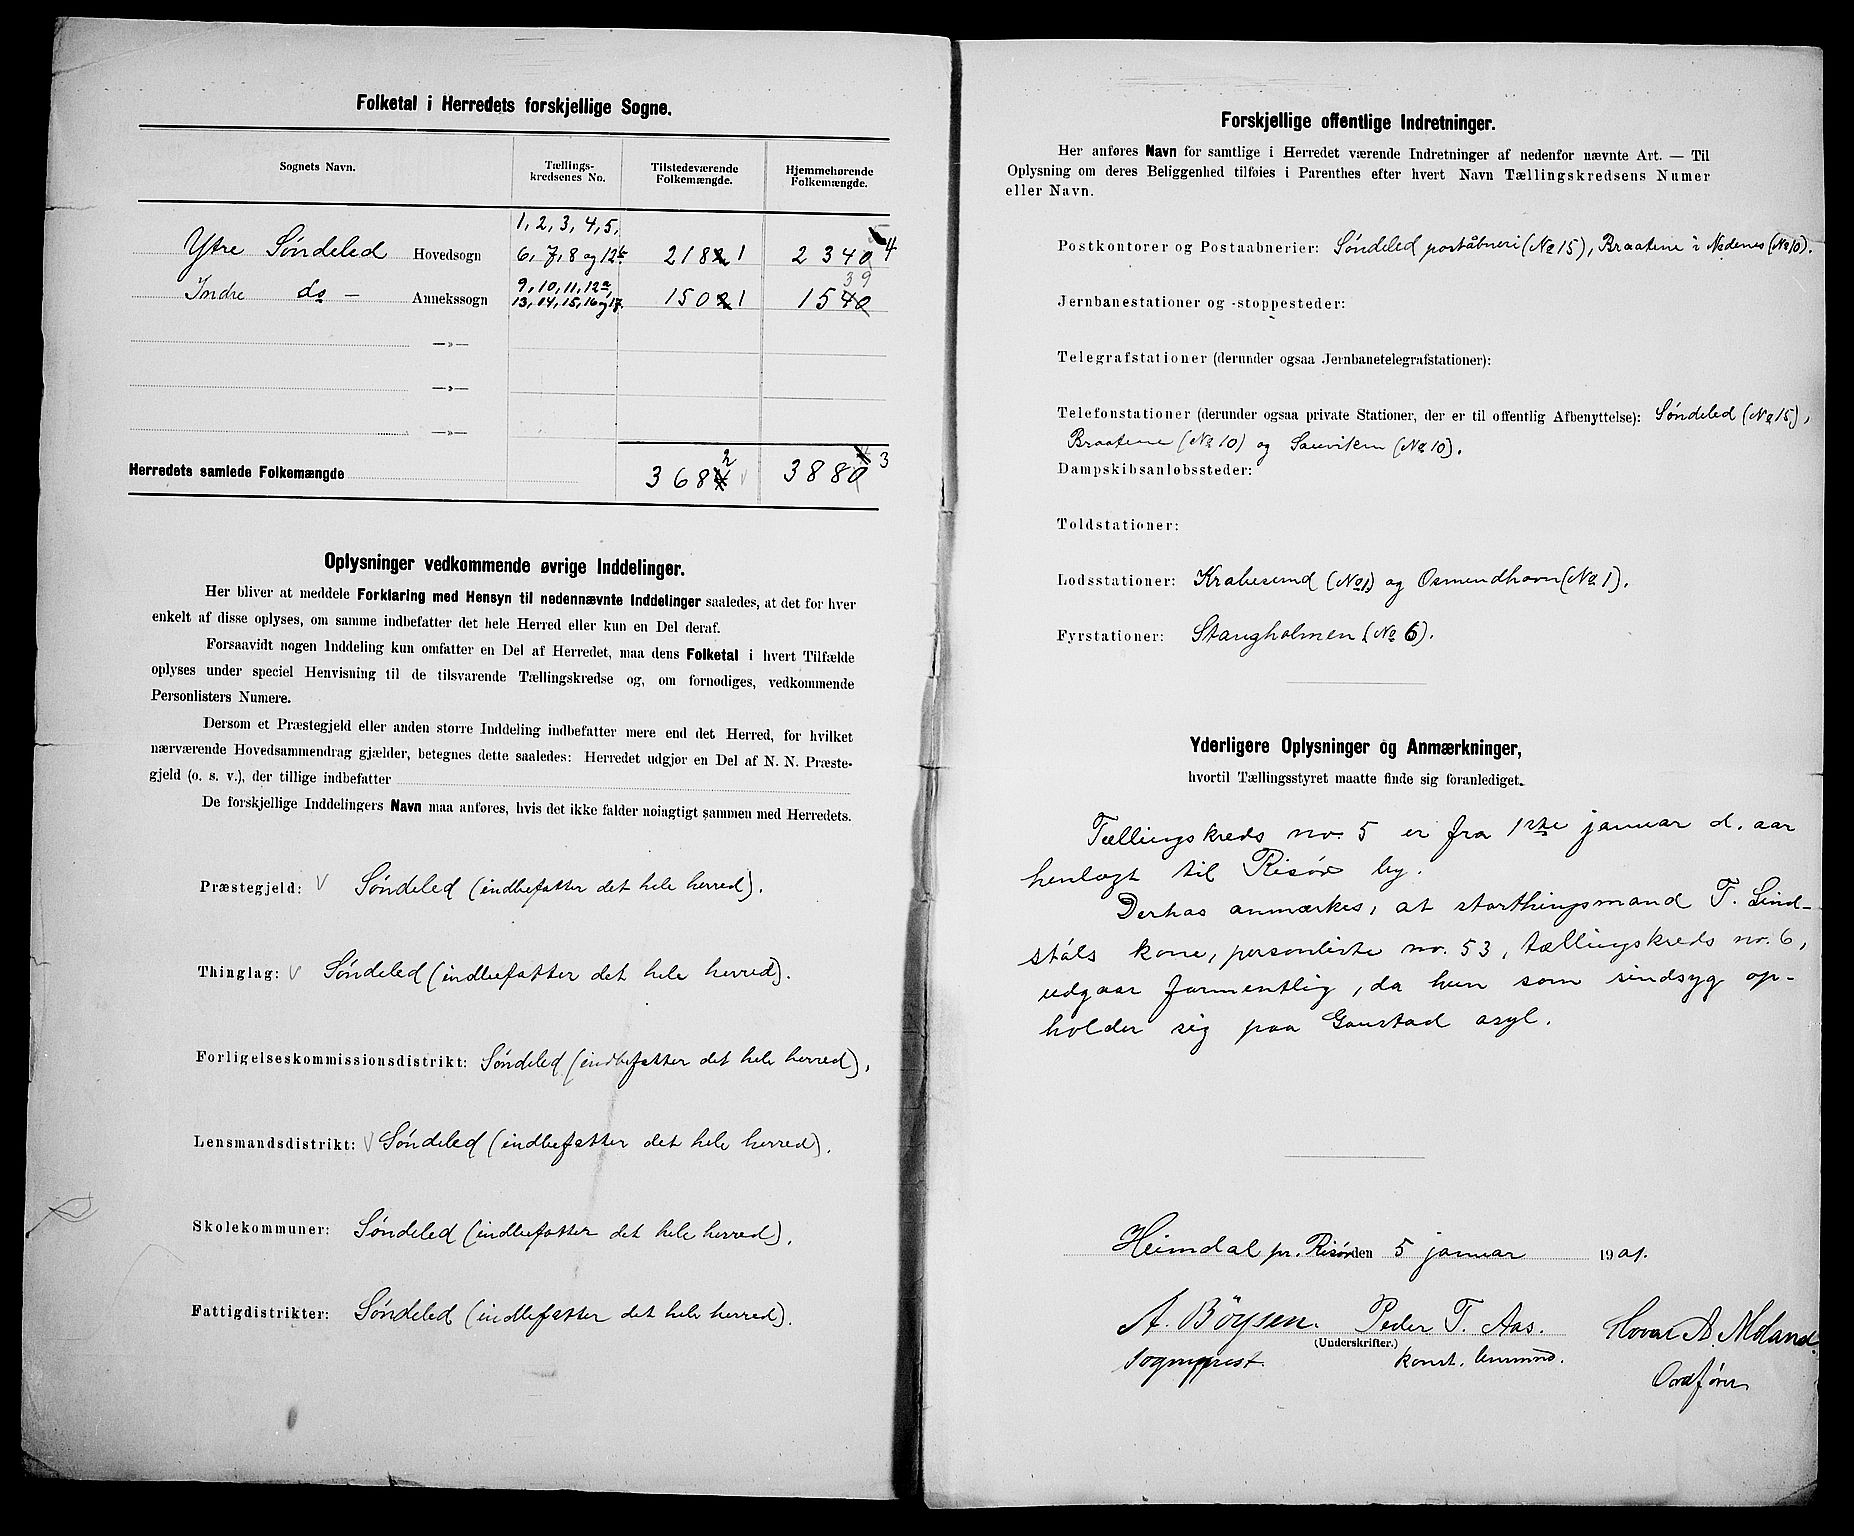 Folketal i Herredets forskjellige Sogne.
Sognets Navn.
Tællings-
kredsenes No.
Tilstedeværende
Folkemængde.
Hjemmehørende
Folkemængde.
1, 2, 3, 4, 5,
Ytre Søndeled Hovedsogn 6, 7, 8 og 12b 2182 1 2340 4
9, 10, 11, 12a, 39
Indre do — Annekssogn 13, 14, 15, 16 og 17. 1502 1 1540
—»—
—»—
—»—
Herredets samlede Folkemængde 368 2 3880 3
Oplysninger vedkommende øvrige Inddelinger.
Her bliver at meddele Forklaring med Hensyn til nedennævnte Inddelinger saaledes, at det for hver
enkelt af disse oplyses, om samme indbefatter det hele Herred eller kun en Del deraf.
Forsaavidt nogen Inddeling kun omfatter en Del af Herredet, maa dens Folketal i hvert Tilfælde
oplyses under speciel Henvisning til de tilsvarende Tællingskredse og, om fornødiges, vedkommende
Personlisters Numere.
Dersom et Præstegjeld eller anden større Inddeling indbefatter mere end det Herred, for hvilket
nærværende Hovedsammendrag gjælder, betegnes dette saaledes: Herredet udgjør en Del af N. N. Præste-
gjeld (o. s. v.), der tillige indbefatter
De forskjellige Inddelingers Navn maa anføres, hvis det ikke falder nøiagtigt sammen med Herredets.
Præstegjeld: Søndeled (indbefatter det hele herred).
Thinglag: Søndeled (indbefatter det hele herred).
Forligelseskommissionsdistrikt: Søndeled (indbefatter det hele herred),
Lensmandsdistrikt: Søndeled (indbefatter det hele herred).
Skolekommuner: Søndeled (indbefatter det hele herred).
Fattigdistrikter: Søndeled (indbefatter det hele herred).
Forskjellige offentlige Indretninger.
Her anføres Navn for samtlige i Herredet værende Indretninger af nedenfor nævnte Art. — Til
Oplysning om deres Beliggenhed tilføies i Parenthes efter hvert Navn Tællingskredsens Numer
eller Navn.
Postkontorer og Postaabnerier: Søndeled poståbneri (No 15), Braatene i Nedenes (No 10).
Jernbanestationer og -stoppesteder:
Telegrafstationer (derunder ogsaa Jernbanetelegrafstationer):
Telefonstationer (derunder ogsaa private Stationer, der er til offentlig Afbenyttelse): Søndeled (No 15),
Braatene (No 10) og Sauviken (No 10).
Dampskibsanløbssteder:
Toldstationer:
Lodsstationer: Krabesund (No 1) og Osmundhavn (No 1).
Fyrstationer: Stangholmen (No 6).
Yderligere Oplysninger og Anmærkninger,
hvortil Tællingsstyret maatte finde sig foranlediget.
Tællingskreds no. 5 er fra 1ste januar d. aar
henlagt til Risør by.
Derhos anmærkes, at storthingsmand T. Lind-
ståls kone, personliste no. 53, tællingskreds no. 6,
udgaar formentlig, da hun som sindsyg op-
holder sig paa Gaustad asyl.
Heimdal pr. Risør den 5 januar 1901.
A. Bøysen. Peder T. Aas. Hovar A. Moland.
(Underskrifter.)
sogneprest. konst. lensmand. Ordfører